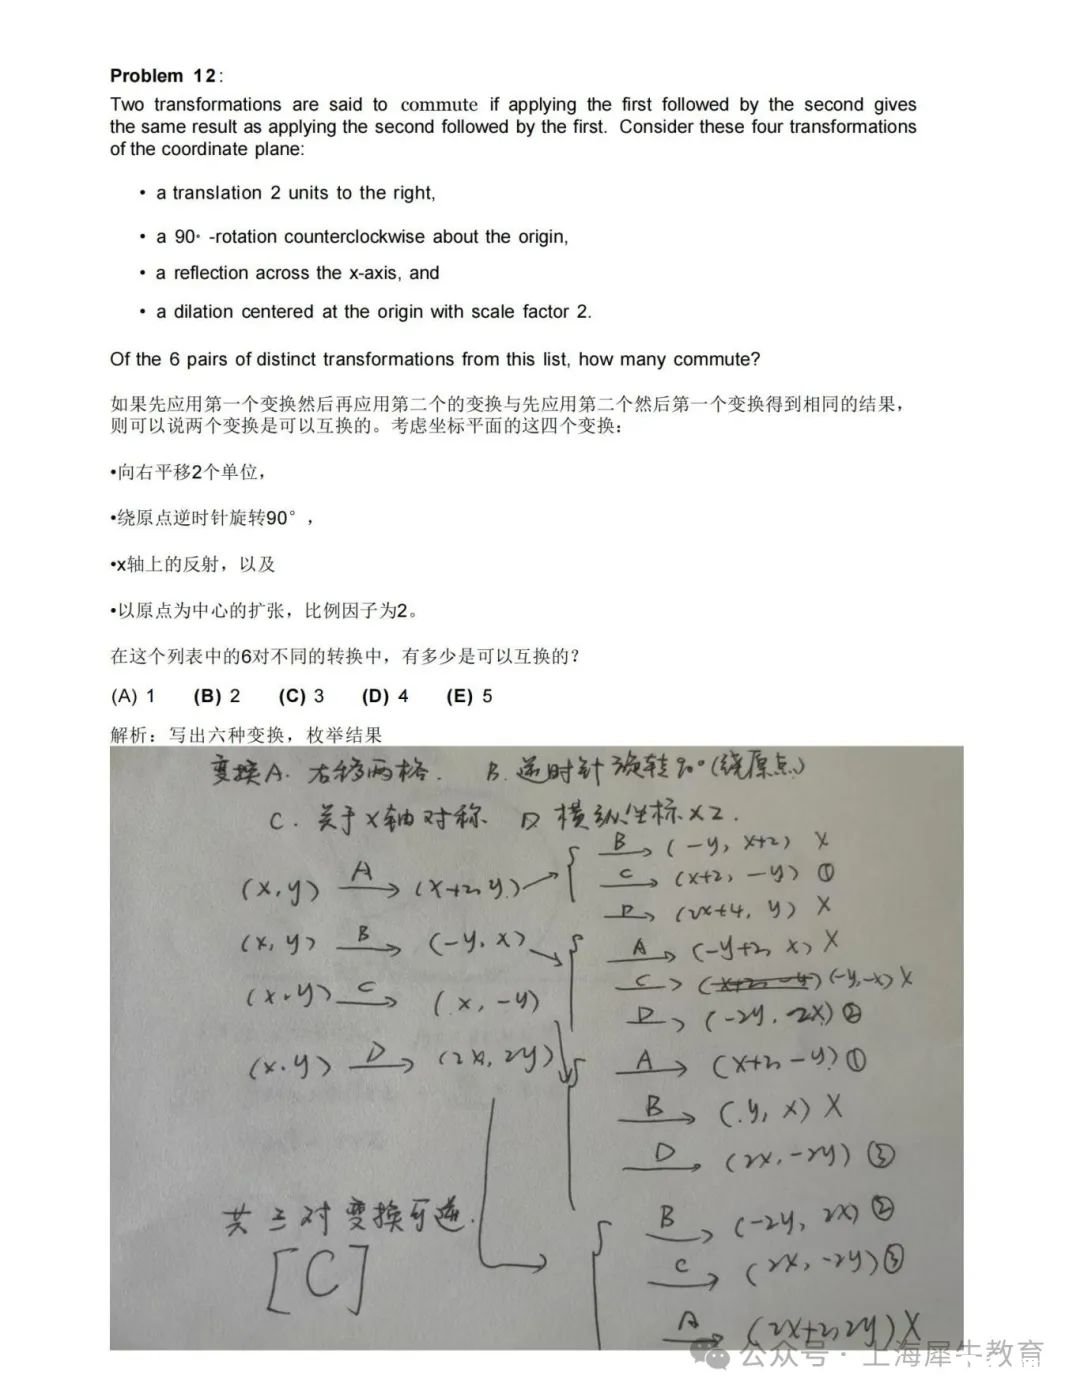 Problem 12:
Two transformations are said to commute if applying the first followed by the second gives
the same result as applying the second followed by the first. Consider these four transformations
of the coordinate plane:
• a translation 2 units to the right,
• a 90° -rotation counterclockwise about the origin,
• a reflection across the x-axis, and
• a dilation centered at the origin with scale factor 2.
Of the 6 pairs of distinct transformations from this list, how many commute?
如果先应用第一个变换然后再应用第二个的变换与先应用第二个然后第一个变换得到相同的结果，
则可以说两个变换是可以互换的。考虑坐标平面的这四个变换：
•向右平移2个单位，
•绕原点逆时针旋转90°，
•x轴上的反射，以及
•以原点为中心的扩张，比例因子为2。
在这个列表中的6对不同的转换中，有多少是可以互换的？
(A) 1 (B) 2 (C) 3 (D) 4 (E) 5
解析：写出六种变换，枚举结果
变换A. 右移两格. B. 逆时针旋转90°(绕原点)
C. 关于X轴对称 D 横纵坐标×2.
(x,y) A→ (x+2,y)
B→ (-y, x+2) X
C→ (x+2, -y) ①
D→ (2x+4, y) X
(x,y) B→ (-y,x)
A→ (-y+2, x) X
C→ (-y,-x) X
D→ (-2y, 2x) ②
(x,y) C→ (x,-y)
A→ (x+2,-y) ①
B→ (y, x) X
D→ (2x,-2y) ③
(x,y) D→ (2x,2y)
B→ (-2y, 2x) ②
C→ (2x,-2y) ③
A→ (2x+2,2y) X
共三对变换可逆.
[C]
公众号·上海犀牛教育